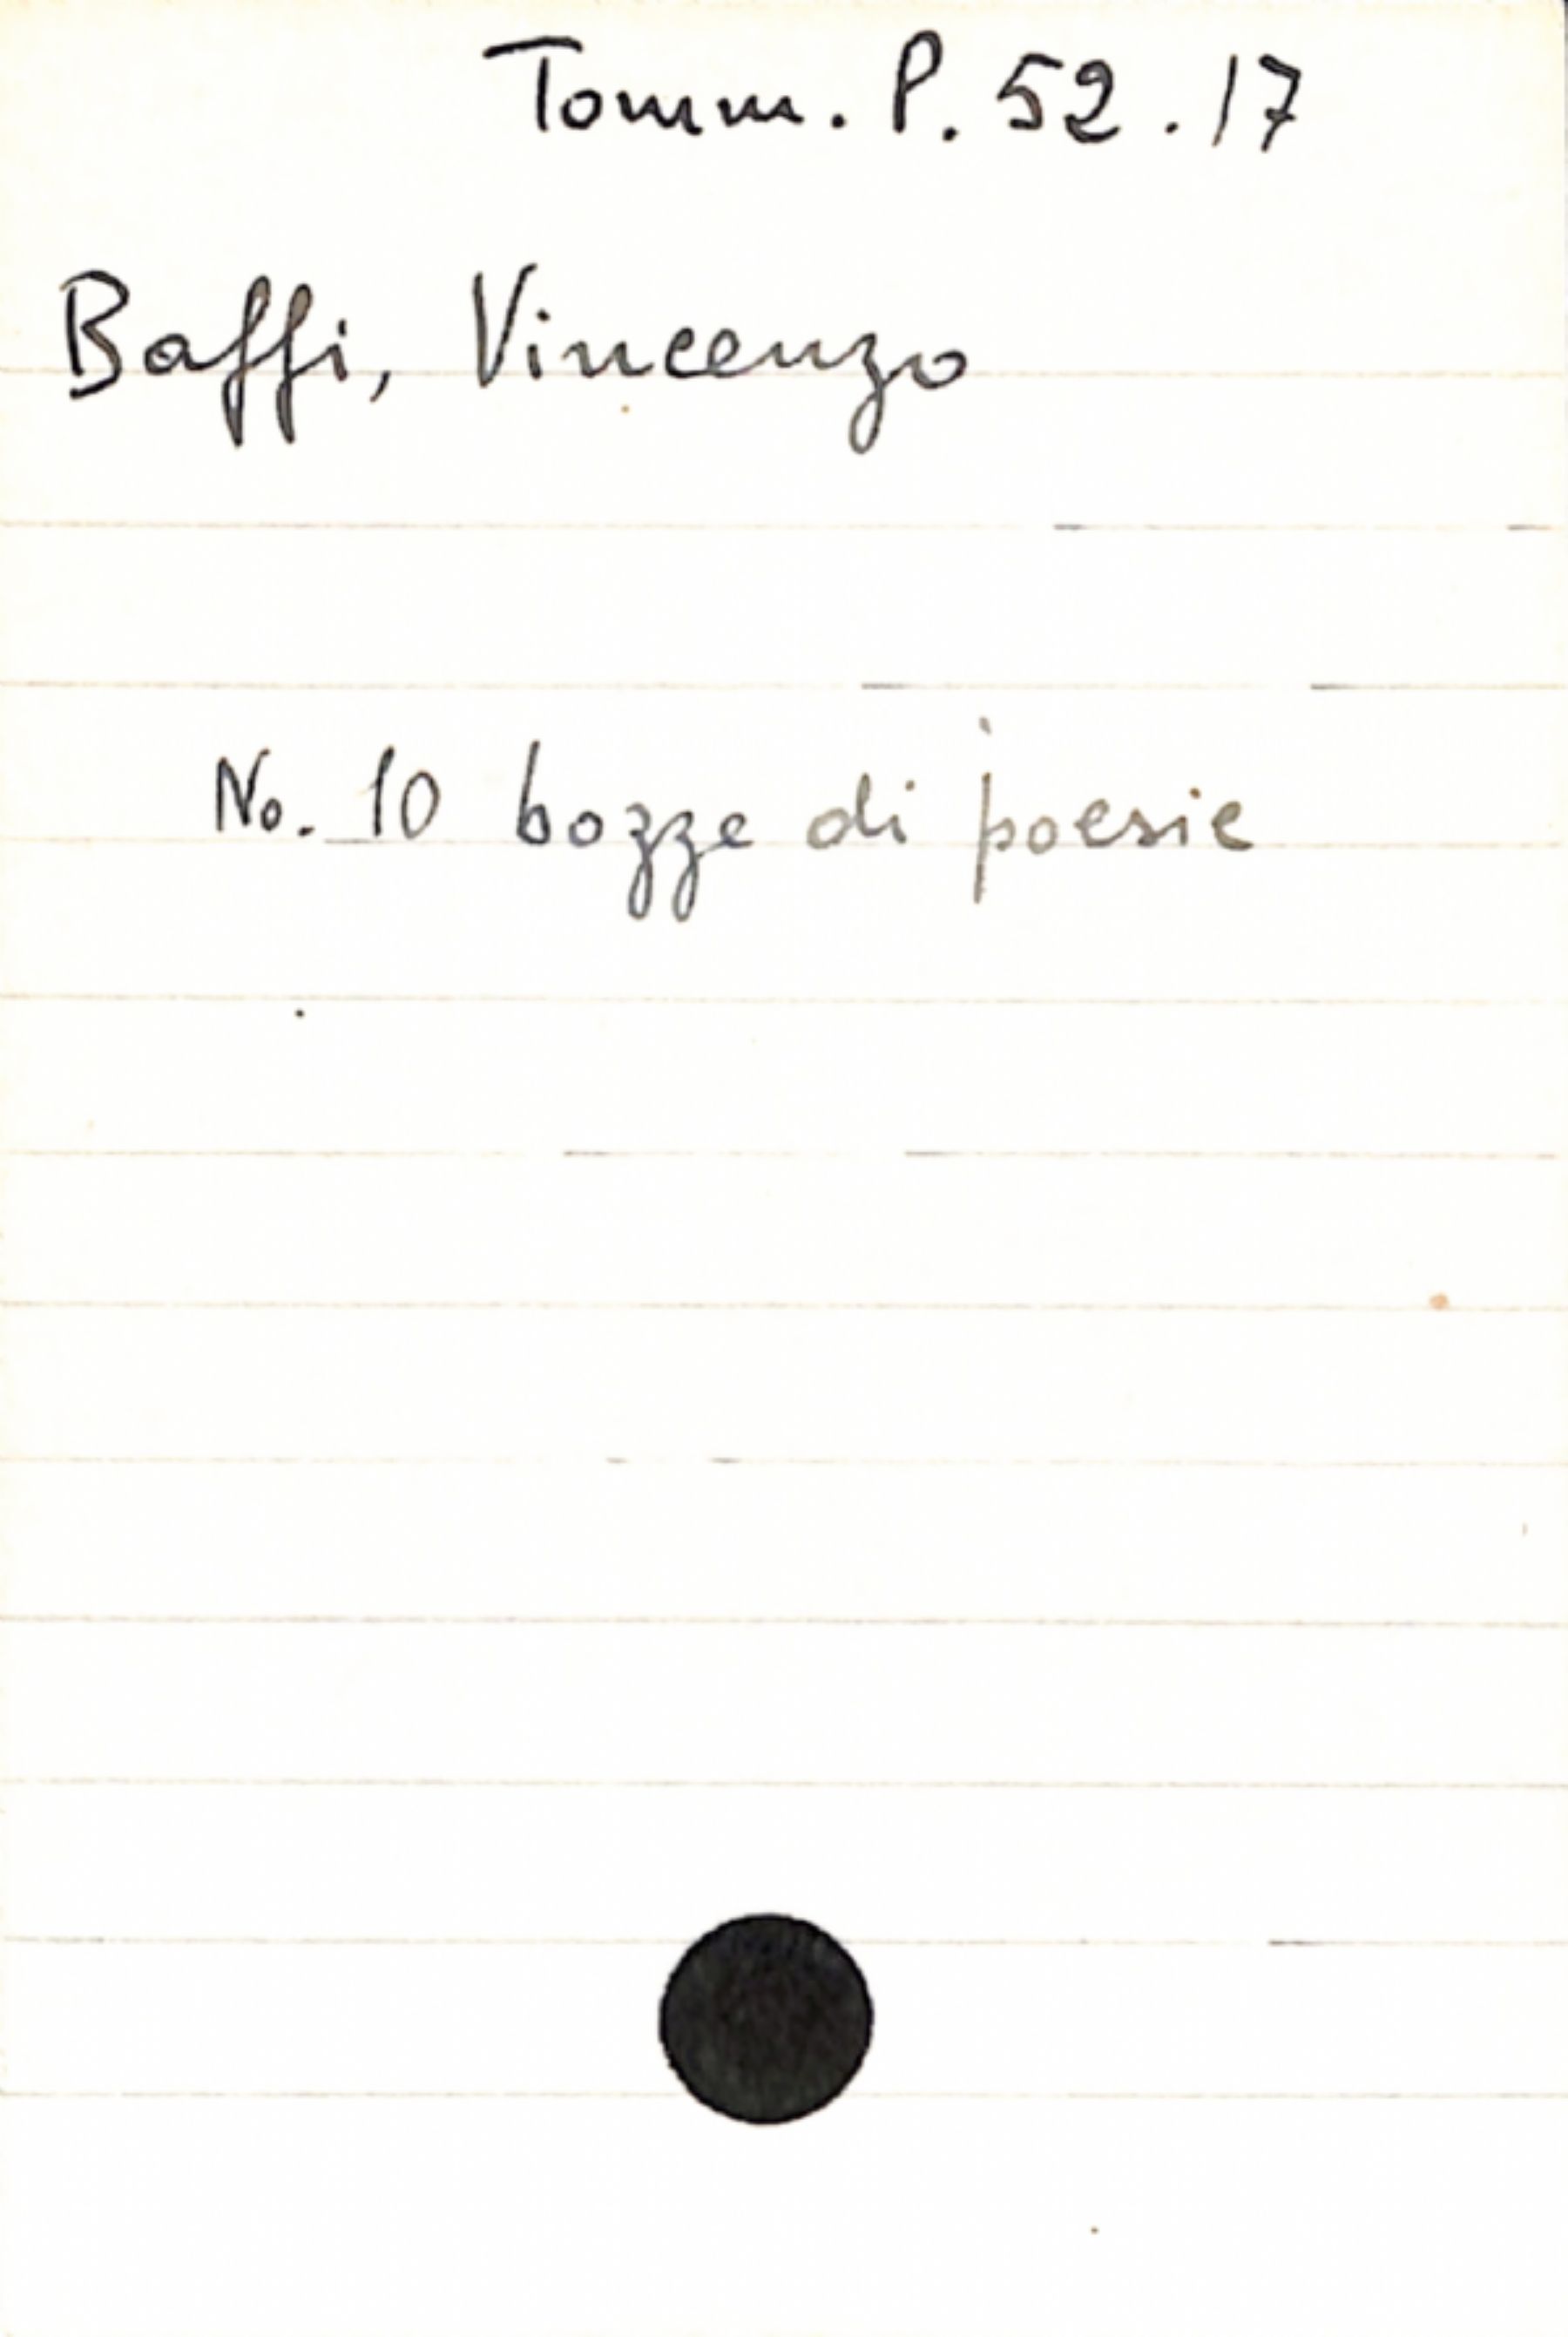 Tomm. P. 52. 17
Baffi, Vincenzo
No. 10 bozze di poesie